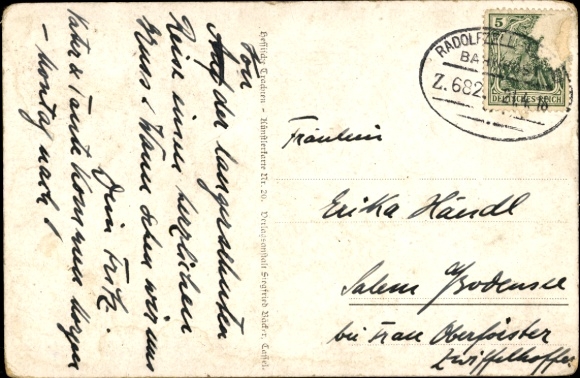 Von
Auf der langersehnten
Reise einen herzlichen
Gruss! Wann sehen wir uns
Dein Fritz.
Vater & Tante kommen morgen
- Montag nach!
Hessische Trachten - Künstlerkarte Nr. 20. Verlagsanstalt Siegfried Bäcker, Cassel.
5
DEUTSCHES REICH
RADOLFZELL
BA
Z. 682
18
Fräulein
Erika Händl
Salem a/Bodensee
bei Frau Oberförster
Zwiffelhoffer